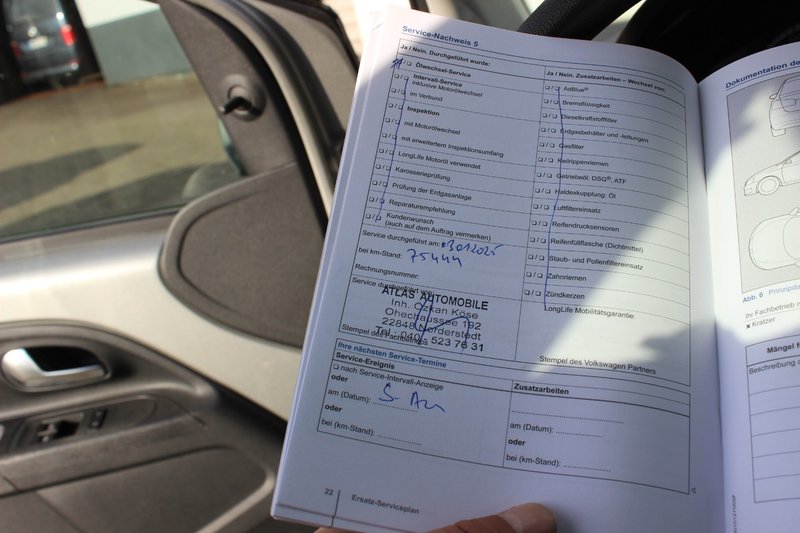 Service-Nachweis 5
Ja / Nein. Durchgeführt wurde:
Ölwechsel-Service
Intervall-Service
inklusive Motorölwechsel
im Verbund
Inspektion
mit Motorölwechsel
mit erweitertem Inspektionsumfang
LongLife Motoröl verwendet
Karosserieprüfung
Prüfung der Erdgasanlage
Reparaturempfehlung
Kundenwunsch
(auch auf dem Auftrag vermerken)
Service durchgeführt am:
bei km-Stand: 75444
Rechnungsnummer:
Service durchgeführt von:
ATLAS AUTOMOBILE
Inh. Özkan Köse
Ohechaussee 192
22848 Norderstedt
Tel. 040 / 523 76 31
Stempel des Fachbetriebs
Ja / Nein. Zusatzarbeiten – Wechsel von:
AdBlue®
Bremsflüssigkeit
Dieselkraftstofffilter
Erdgasbehälter und -leitungen
Gasfilter
Keilrippenriemen
Getriebeöl: DSG®, ATF
Haldexkupplung: Öl
Luftfiltereinsatz
Reifendrucksensoren
Reifenfüllflasche (Dichtmittel)
Staub- und Pollenfiltereinsatz
Zahnriemen
Zündkerzen
LongLife Mobilitätsgarantie:
Stempel des Volkswagen Partners
Ihre nächsten Service-Termine
Service-Ereignis
nach Service-Intervall-Anzeige
oder
am (Datum):
oder
bei (km-Stand):
Zusatzarbeiten
am (Datum):
oder
bei (km-Stand):
22
Ersatz-Serviceplan
Dokumentation de
Abb. 6 Prinzipda
Ihr Fachbetrieb
x Kratzer
Mängel f
Beschreibung